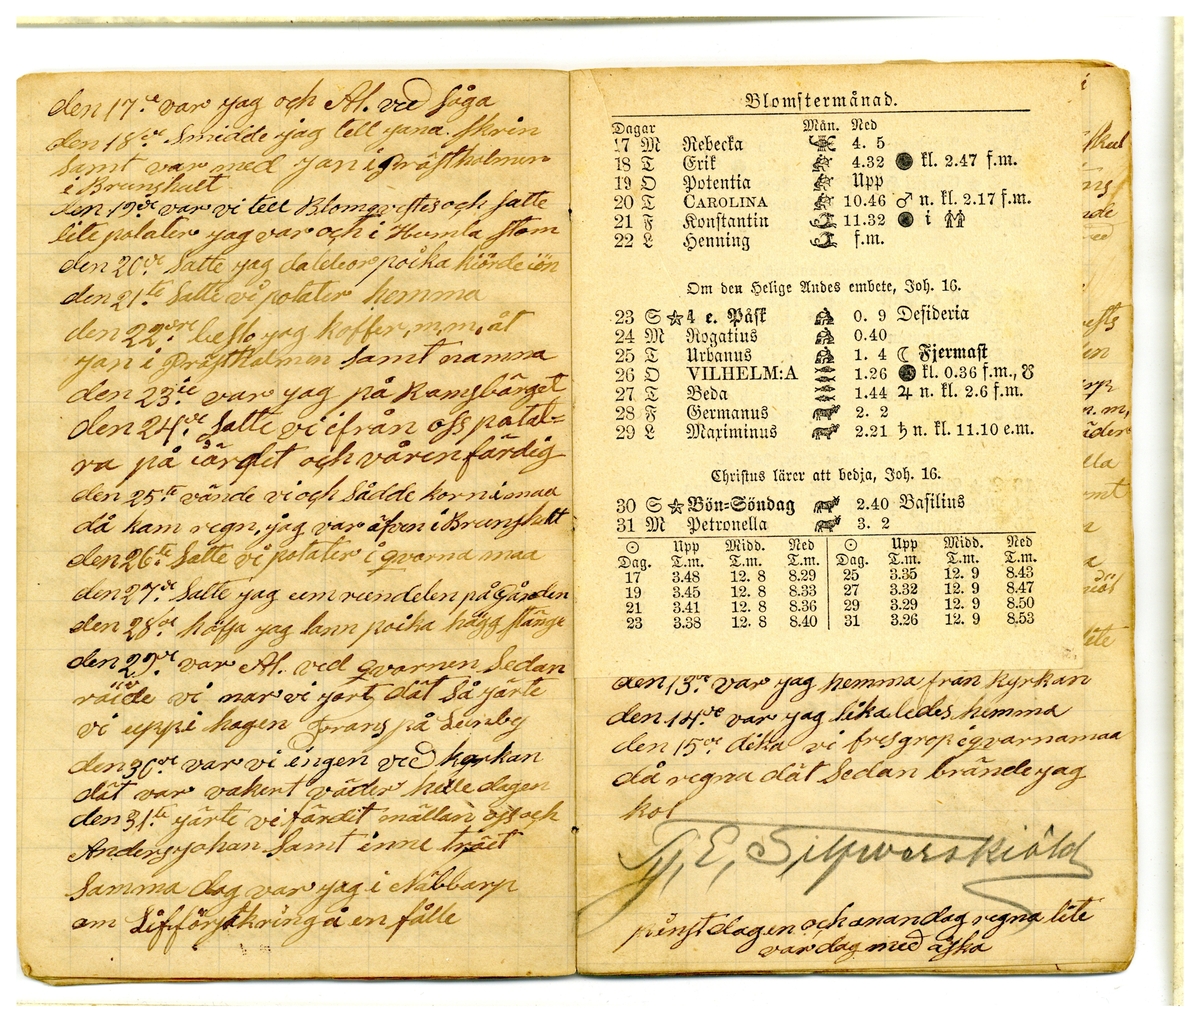 den 17de var jag och Al. ved såga
den 18de Smidde jag tell jana skrin
Samt var med Jan i Prästholmen
i Brunshult
den 19de var vi tell Blomqvistes och satte
lite potater jag var och i Humla stom
den 20de Satte jag daldeor poika kiörde iön
den 21te Satte vi potater hemma
den 22dre beslo jag koffer, m.m. åt
Jan i Prästholmen Samt namma
den 23ie var jag på Ramsbärget
den 24de Satte vi ifrån oss potat-
ra på iärdet och våren färdig
den 25te vände vi och Sådde korn i maa
då kam regn, jag var äfven i Brunshult
den 26te Satte vi potater i qvarna maa
den 27de Satte jag um rundelen på Gården
den 28de höfja jag lann poika hägg stänge
den 29de var Al. ved qvarnen Sedan
röide vi nar vi jort dät Så järte
vi uppi hagen Frans på Lunby
den 30de var vi ingen ved kyrkan
dät var vakert väder hele dagen
den 31te järte vi färdit mällan oss och
Anders johan Samt inne träet
Samma dag var jag i Näbbarp
om Lifförsäkring å en fålle
Blomstermånad.
Dagar Mån. Ned
17 M Rebecka 4. 5
18 T Erik 4.32 ● kl. 2.47 f.m.
19 O Potentia Upp
20 T CAROLINA 10.46 ♂ n. kl. 2.17 f.m.
21 F Konstantin 11.32 ● i
22 L Henning f.m.
Om den Helige Andes embete, Joh. 16.
23 S ☆ 4 e. Påsk 0. 9 Desideria
24 M Rogatius 0.40
25 T Urbanus 1. 4 ☾ Fjermast
26 O VILHELM:A 1.26 ● kl. 0.36 f.m., ☋
27 T Beda 1.44 ♃ n. kl. 2.6 f.m.
28 F Germanus 2. 2
29 L Maximinus 2.21 ♄ n. kl. 11.10 e.m.
Christus lärer att bedja, Joh. 16.
30 S ☆ Bön-Söndag 2.40 Basilius
31 M Petronella 3. 2
☉ Upp Midd. Ned ☉ Upp Midd. Ned
Dag. T.m. T.m. T.m. Dag. T.m. T.m. T.m.
17 3.48 12. 8 8.29 25 3.35 12. 9 8.43
19 3.45 12. 8 8.33 27 3.32 12. 9 8.47
21 3.41 12. 8 8.36 29 3.29 12. 9 8.50
23 3.38 12. 8 8.40 31 3.26 12. 9 8.53
den 13de var jag hemma från kyrkan
den 14de var jag lika ledes hemma
den 15de dika vi fresgrop i qvarnamaa
då regna dät Sedan brände jag
kol
J, E, Silfwerskiöld
pinst dagen och anan dag regna lite
var dag med åska